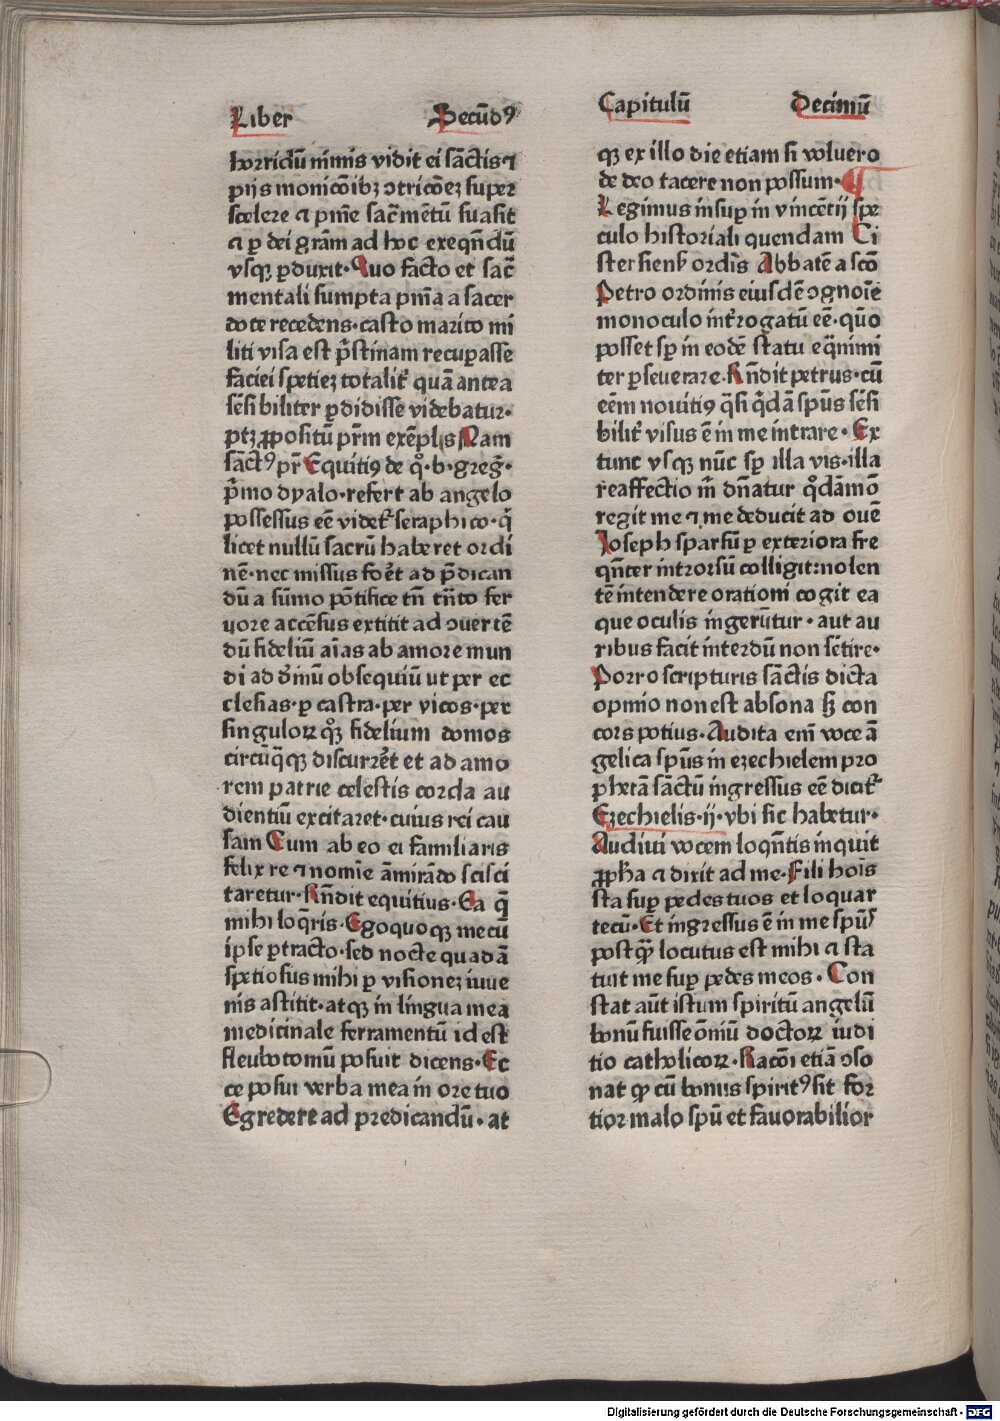 Liber Secūdꝰ
horridū nimis vidit ei sāctis ⁊
pijs monicōibꝫ ↄtricōeꝫ super
scelere ⁊ pn̄ie sac̄mētū suasit
⁊ ꝑ dei grām ad hoc exeqn̄dū
vsqꝫ ꝑduxit. Quo facto et sac̄
mentali sumpta pn̄ia a sacer
dote recedens. casto marito mi
liti visa est p̄stinam recuꝑasse
faciei spetieꝫ totalit̄ quā antea
sēsibiliter ꝑdidisse videbatur.
ptꝫ ꝓpositū pr̄m exēplis Nam
sāctꝰ pr̄ Equitiꝰ de qͦ. b. greḡ.
p̄mo dyalo. refert ab angelo
possessus eē videt̄ seraphico. qͥ
licet nullū sacrū haberet ordi
nē. nec missus foēt ad p̄dican
dū a sūmo pōtifice tn̄ tn̄to fer
uore accēsus extitit ad ↄuertē
dū fideliū aīas ab amore mun
di ad dīmū obsequiū ut per ec
clesias. ꝑ castra. per vicos. per
singuloꝝ qͦꝫ fidelium domos
circūqͣqꝫ discurrēt et ad amo
rem patrie celestis corda au
dientiū excitaret. cuius rei cau
sam Cum ab eo ei familiaris
felix re ⁊ nomīe āmirādo scisci
taretur. Rn̄dit equitius. Ea qͣ
mihi loqr̄is. Egoquoqꝫ mecū
ipse ꝑtracto. sed nocte quadā
spetiosus mihi ꝑ visioneꝫ iuue
nis astitit. atqꝫ in lingua mea
medicinale ferramentū id est
fleubotomū posuit dicens. Ec
ce posui verba mea in ore tuo
Egredere ad predicandū. at
Capitulū Decimū
qꝫ ex illo die etiam si voluero
de deo tacere non possum. ¶
Legimus insuꝑ in vincētij spe
culo historiali quendam Ci
stersiens̄ ordīs Abbatē a scō
Petro ordinis eiusdē ↄgnoīe
monoculo int̄rogatū eē. quō
posset sꝑ in eodē statu eqͣnimi
ter ꝑseuerare. Rn̄dit petrus. cū
eēm nouitiꝰ qͣsi qͥdā spūs sēsi
bilit̄ visus ē in me intrare. Ex
tunc vsqꝫ nūc sꝑ illa vis. illa
reaffectio m̄ dn̄atur qͦdāmō
regit me ⁊ me deducit ad ouē
Joseph sparsū ꝑ exteriora fre
qn̄cer introrsū colligit: nolen
tē intendere orationi cogit ea
que oculis ingerūtur. aut au
ribus facit interdū non sētire.
Porro scripturis sāctis dicta
opinio non est absona sꝫ con
cors potius. Audita eni᷒ voce ā
gelica spūs in ezechielem pro
phetā sāctū ingressus eē dicit̄
Ezechielis. ij. vbi sic habetur.
Audiui vocem loqn̄tis inquit
ꝓph̄a ⁊ dixit ad me. Fili hoīs
sta suꝑ pedes tuos et loquar
tecū. Et ingressus ē in me spūs
postqͣꝫ locutus est mihi ⁊ sta
tuit me suꝑ pedes meos. Con
stat aūt istum spiritū angelū
bonū fuisse ōniū doctoꝝ iudi
tio catholicoꝝ. Racōi etiā ↄso
nat ꝙ cū bonus spiritꝰ sit for
tior malo spū et fauorabilior
Digitalisierung gefördert durch die Deutsche Forschungsgemeinschaft - DFG